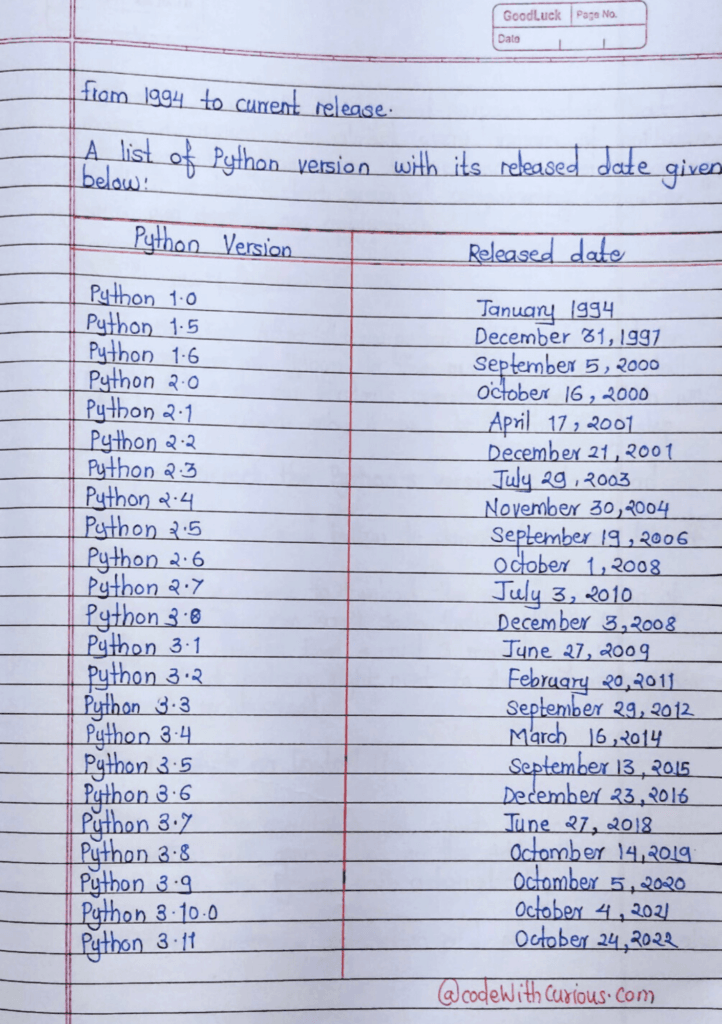 GoodLuck Page No.
Date
from 1994 to current release.
A list of Python version with its released date given
below:
Python Version Released date
Python 1.0 January 1994
Python 1.5 December 31, 1997
Python 1.6 September 5, 2000
Python 2.0 October 16, 2000
Python 2.1 April 17, 2001
Python 2.2 December 21, 2001
Python 2.3 July 29, 2003
Python 2.4 November 30, 2004
Python 2.5 September 19, 2006
Python 2.6 October 1, 2008
Python 2.7 July 3, 2010
Python 3.0 December 3, 2008
Python 3.1 June 27, 2009
Python 3.2 February 20, 2011
Python 3.3 September 29, 2012
Python 3.4 March 16, 2014
Python 3.5 September 13, 2015
Python 3.6 December 23, 2016
Python 3.7 June 27, 2018
Python 3.8 Octomber 14, 2019
Python 3.9 Octomber 5, 2020
Python 3.10.0 October 4, 2021
Python 3.11 October 24, 2022
@codeWithCurious.com